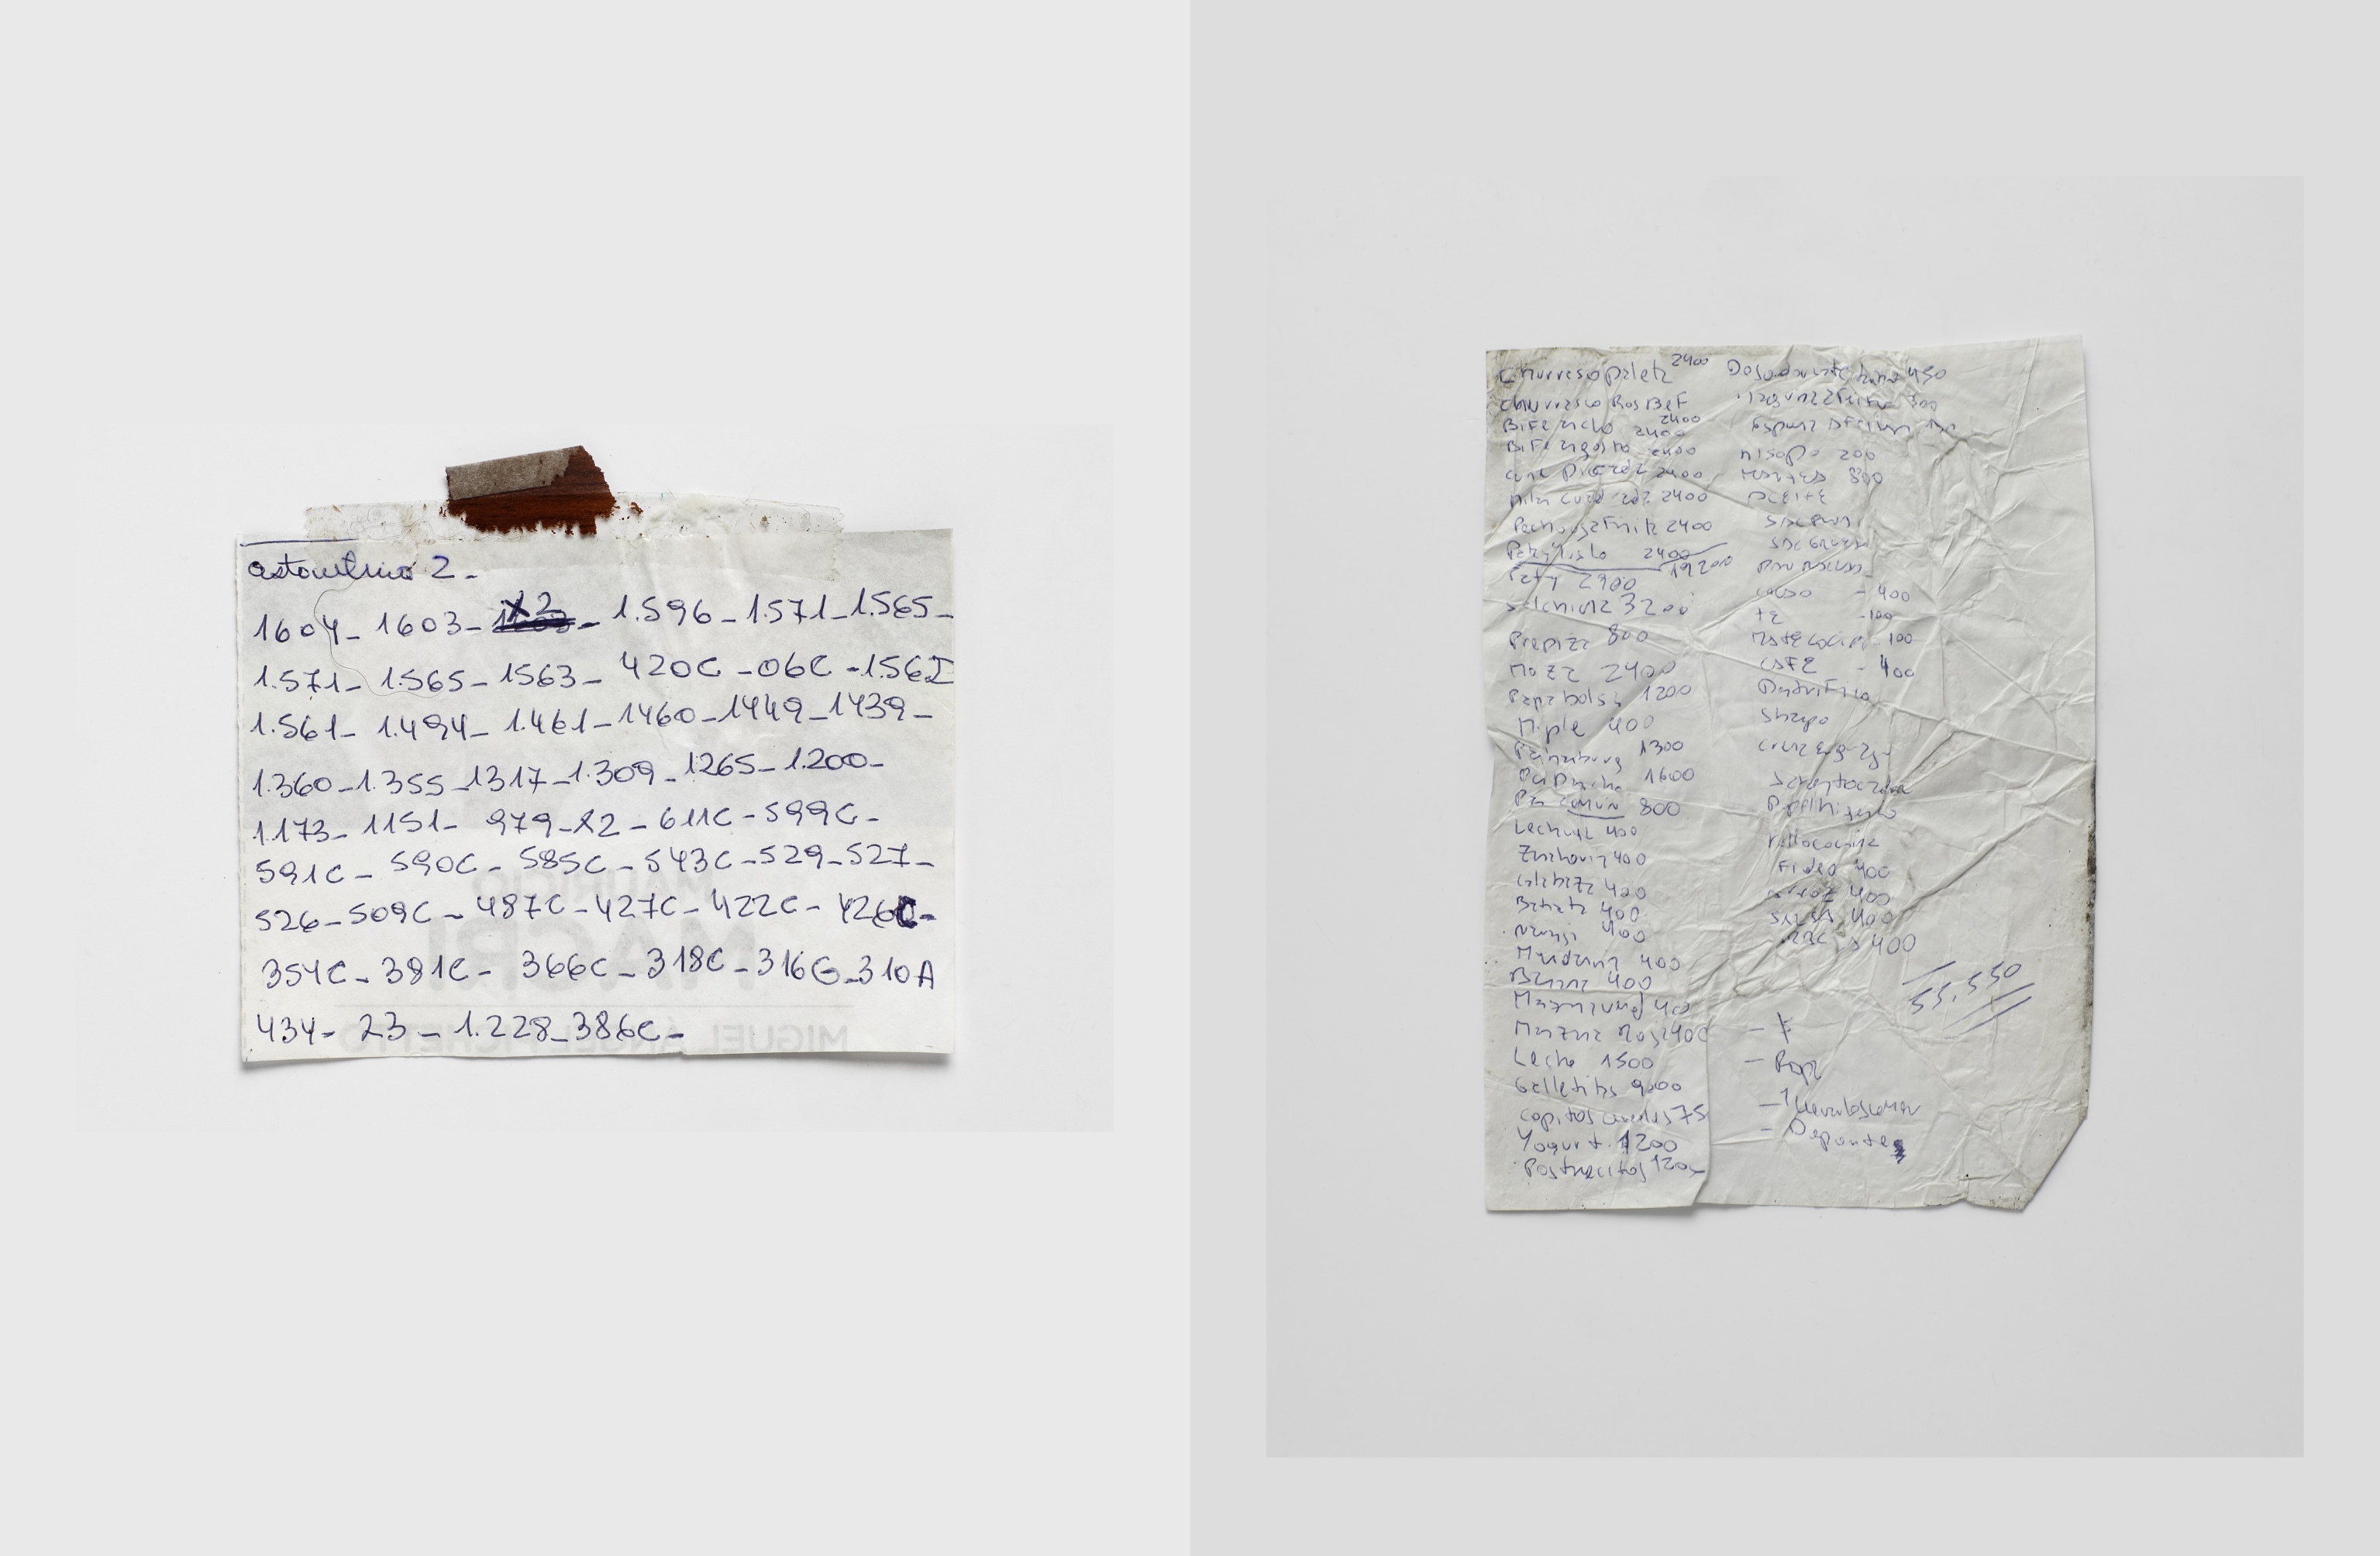 2-
1604- 1603- X2 - 1.596-1.571-1.565-
1.571- 1.565- 1563- 420C -06C -1.562
1.561- 1.494- 1.461-1460-1449-1439-
1.360-1.355-1317-1.309-1265-1.200-
1.173- 1151- 979-X2-611C-599C-
591C- 590C- 585C-543C-529-527-
526-509C-487C-427C-422C-426C-
354C-381C- 366C-318C-316G-310A
434- 23- 1.228-386C-
MAURICIO
MACRI
MIGUEL ÁNGEL PICHETTO
Churrasco paleta 2400
churrasco RosBeF 2400
BiFe ancho 2400
BiFe angosto 2400
carne picada 2400
mila cuad 2400
2400
Paty 2400 19200
Paty 2900
salchicha 3200
Prepizza 800
Mozz 2400
Papa bolsa 1200
Miple 400
Panzburg 1300
Pan Pancho 1600
Pan comun 800
Lechuga 400
Znahoria 400
calabaza 400
Batata 400
Naranja 400
Mandarina 400
Banana 400
Manzana verd 400
Manzana Roja 400
Leche 1500
Galletitas 9000
copitos 75
Yogurt 1200
Postrecitos 1200
Desodorante 450
300
Espuma
hisopo 200
800
ACEITE
400
TE -100
Mate cocido -100
CAFE - 400
Dentrifico
Shampo
enjuage
P. Higienico
Rollo cocina
Fideo 400
arroz 400
SALSA 400
400
55.550
- Ropa
- Deporte